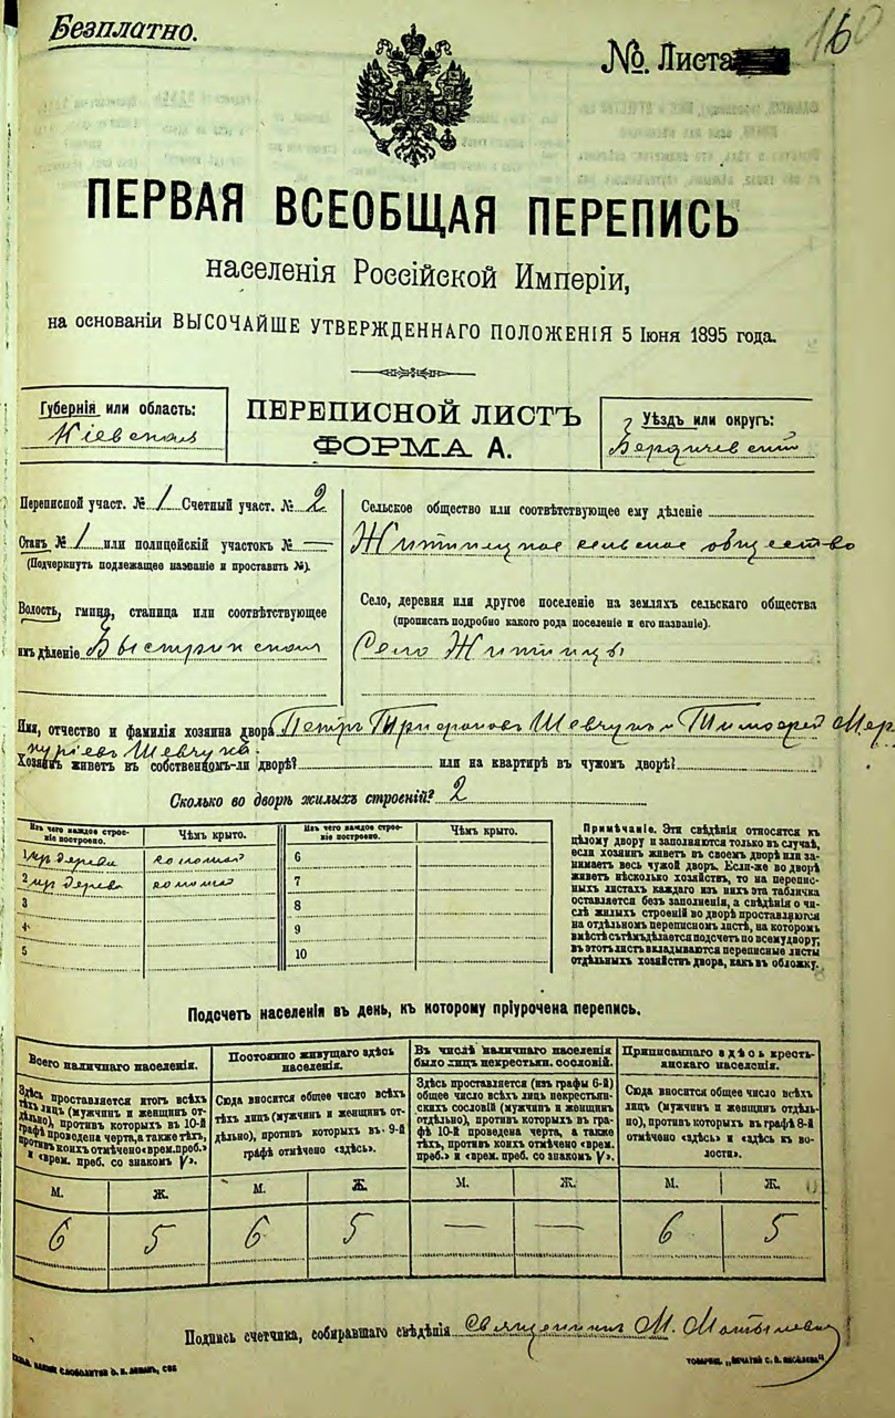 Безплатно.
№. Листа
16
ПЕРВАЯ ВСЕОБЩАЯ ПЕРЕПИСЬ
населенія Россійской Имперіи,
на основаніи ВЫСОЧАЙШЕ УТВЕРЖДЕННАГО ПОЛОЖЕНІЯ 5 Іюня 1895 года.
Губернія или область:
Кіевская
ПЕРЕПИСНОЙ ЛИСТЪ
ФОРМА А.
Уѣздъ или округъ:
Бердичевскій
Переписной участ. № 1 Счетный участ. № 2
Станъ № 1 или полицейскій участокъ № —
(Подчеркнуть подлежащее названіе и проставить №).
Волость, гмина, станица или соотвѣтствующее
ихъ дѣленіе Быстрикская
Сельское общество или соотвѣтствующее ему дѣленіе
Житинское сельское общество
Село, деревня или другое поселеніе на земляхъ сельскаго общества
(прописать подробно какого рода поселеніе и его названіе).
Село Житинцы
Имя, отчество и фамилія хозяина двора Петръ Трифоновъ Шевчукъ и Тимофей Мер
куріевъ Шевчукъ.
Хозяинъ живетъ въ собственномъ-ли дворѣ? или на квартирѣ въ чужомъ дворѣ?
Сколько во дворѣ жилыхъ строеній? 2
Изъ чего каждое строеніе построено.
Чѣмъ крыто.
Изъ чего каждое строеніе построено.
Чѣмъ крыто.
1 изъ дерева соломой 6
2 изъ дерева соломой 7
3 8
4 9
5 10
Примѣчаніе. Эти свѣдѣнія относятся къ
цѣлому двору и заполняются только въ случаѣ,
если хозяинъ живетъ въ своемъ дворѣ или за-
нимаетъ весь чужой дворъ. Если-же во дворѣ
живетъ нѣсколько хозяйствъ, то на перепис-
ныхъ листахъ каждаго изъ нихъ эта табличка
оставляется безъ заполненія, а свѣдѣнія о чи-
слѣ жилыхъ строеній во дворѣ проставляются
на отдѣльномъ переписномъ листѣ, на которомъ
вмѣстѣ съ тѣмъ дѣлается подсчетъ по всему двору;
въ этотъ листъ вкладываются переписные листы
отдѣльныхъ хозяйствъ двора, какъ въ обложку.
Подсчетъ населенія въ день, къ которому пріурочена перепись.
Всего наличнаго населенія.
Здѣсь проставляется итогъ всѣхъ
тѣхъ лицъ (мужчинъ и женщинъ от-
дѣльно), противъ которыхъ въ 10-й
графѣ проведена черта, а также тѣхъ,
противъ коихъ отмѣчено «врем. преб.»
и «врем. преб. со знакомъ V».
Постоянно живущаго здѣсь
населенія.
Сюда вносится общее число всѣхъ
тѣхъ лицъ (мужчинъ и женщинъ от-
дѣльно), противъ которыхъ въ 9-й
графѣ отмѣчено «здѣсь».
Въ числѣ наличнаго населенія
было лицъ некрестьян. сословій.
Здѣсь проставляется (изъ графы 6-й)
общее число всѣхъ лицъ некрестьян-
скихъ сословій (мужчинъ и женщинъ
отдѣльно), противъ которыхъ въ гра-
фѣ 10-й проведена черта, а также
тѣхъ, противъ коихъ отмѣчено «врем.
преб.» и «врем. преб. со знакомъ V».
Приписаннаго здѣсь кресть-
янскаго населенія.
Сюда вносится общее число всѣхъ
лицъ (мужчинъ и женщинъ отдѣль-
но), противъ которыхъ въ графѣ 8-й
отмѣчено «здѣсь» и «здѣсь къ во-
лости».
М. Ж. М. Ж. М. Ж. М. Ж.
6 5 6 5 — — 6 5
Подпись счетчика, собиравшаго свѣдѣнія Священникъ М.